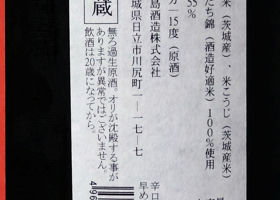 米（茨城産）、米こうじ（茨城産米）
たち錦（酒造好適米）100％使用
55％
分－15度（原酒）
島酒造株式会社
城県日立市川尻町一―一七―七
無ろ過生原酒。オリが沈殿する事が
ありますが異常ではございません。
飲酒は20歳になってから。
蔵
辛口
早め
496